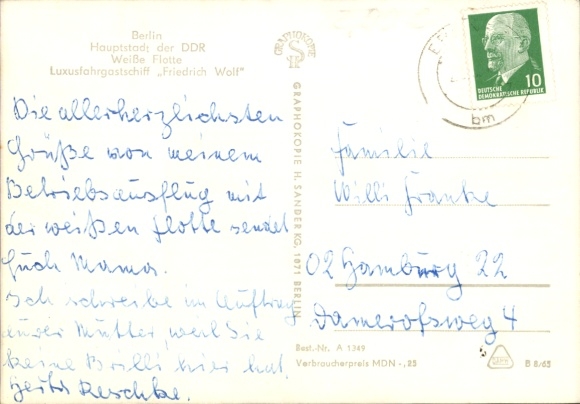 Berlin
Hauptstadt der DDR
Weiße Flotte
Luxusfahrgastschiff „Friedrich Wolf"
Die allerherzlichsten
Grüße von meinem
Betriebsausflug mit
der weißen Flotte sendet
Euch Mama.
Ich schreibe im Auftrag
eurer Mutter, weil Sie
keine Brille hier hat
Reschke.
GRAPHOKOPIE
GRAPHOKOPIE H. SANDER KG, 1871 BERLIN
10
DEUTSCHE
DEMOKRATISCHE REPUBLIK
bm
Familie
Willi Franke
02 Hamburg 22
Damerofsweg 4
Best.-Nr. A 1349
Verbraucherpreis MDN -,25
B 8/65